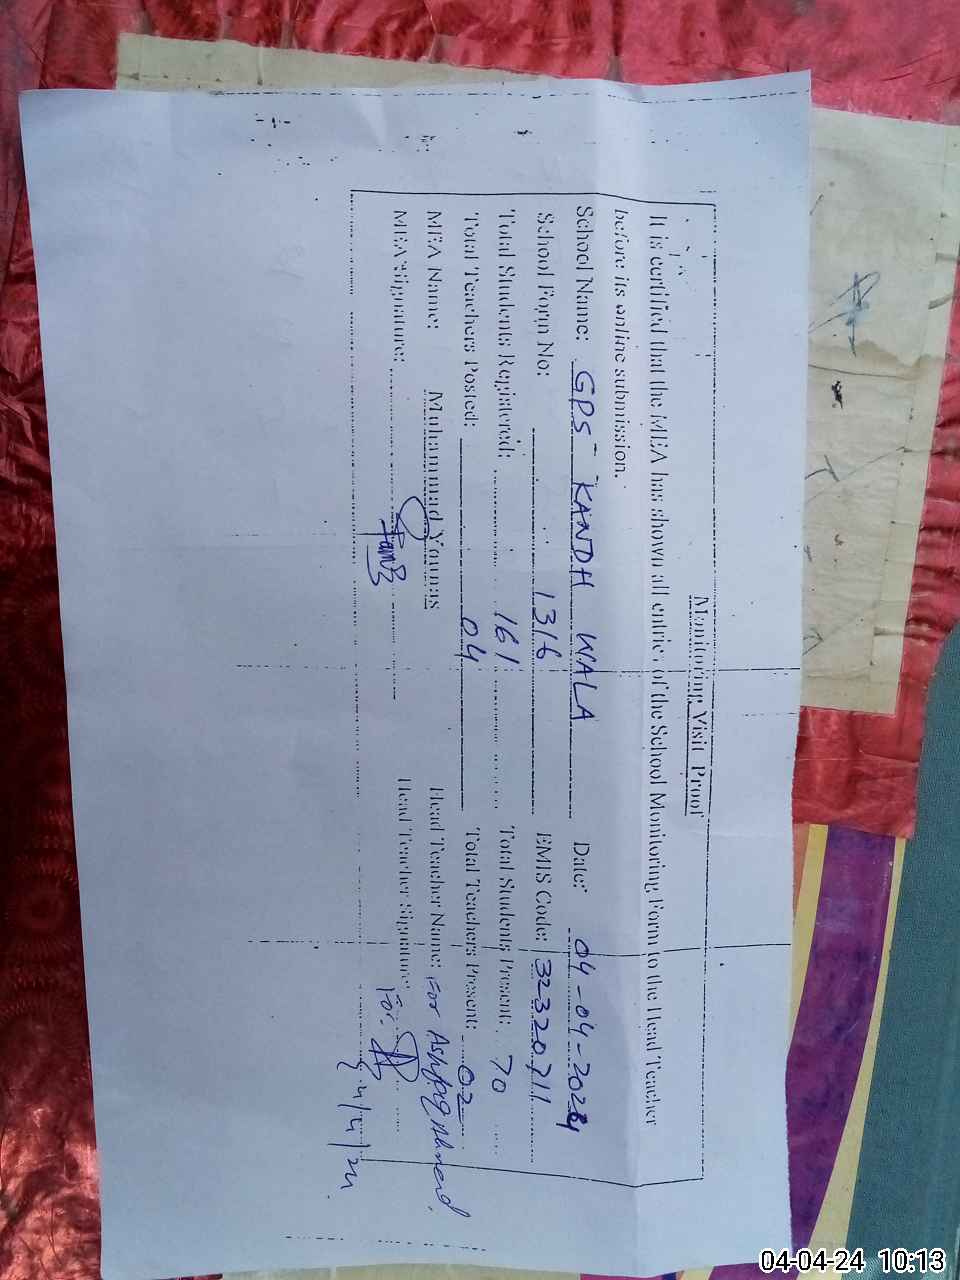 Monitoring Visit Proof
It is certified that the MEA has shown all entries of the School Monitoring Form to the Head Teacher
before its online submission.
School Name: GPS KANDH WALA Date: 04-04-2024
School Form No: 1316 EMIS Code: 32320711
Total Students Registered: 161 Total Students Present: 70
Total Teachers Posted: 04 Total Teachers Present: 02
MEA Name: Muhammad Younas Head Teacher Name: For Ashfaq Ahmad
MEA Signature: Head Teacher Signature: For
4/4/24
04-04-24 10:13